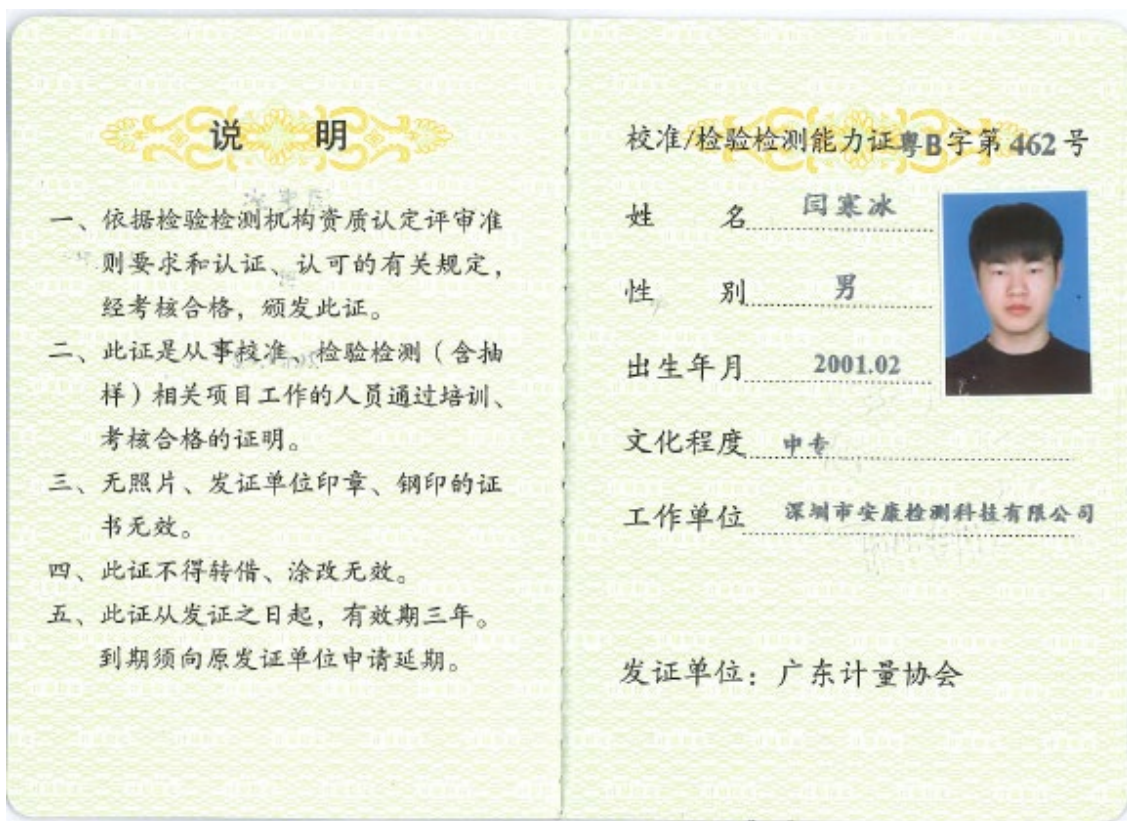 说 明
一、依据检验检测机构资质认定评审准
则要求和认证、认可的有关规定，
经考核合格，颁发此证。
二、此证是从事校准、检验检测（含抽
样）相关项目工作的人员通过培训、
考核合格的证明。
三、无照片、发证单位印章、钢印的证
书无效。
四、此证不得转借、涂改无效。
五、此证从发证之日起，有效期三年。
到期须向原发证单位申请延期。
校准/检验检测能力证粤B字第 462 号
姓 名 闫寒冰
性 别 男
出生年月 2001.02
文化程度 中专
工作单位 深圳市安康检测科技有限公司
发证单位：广东计量协会